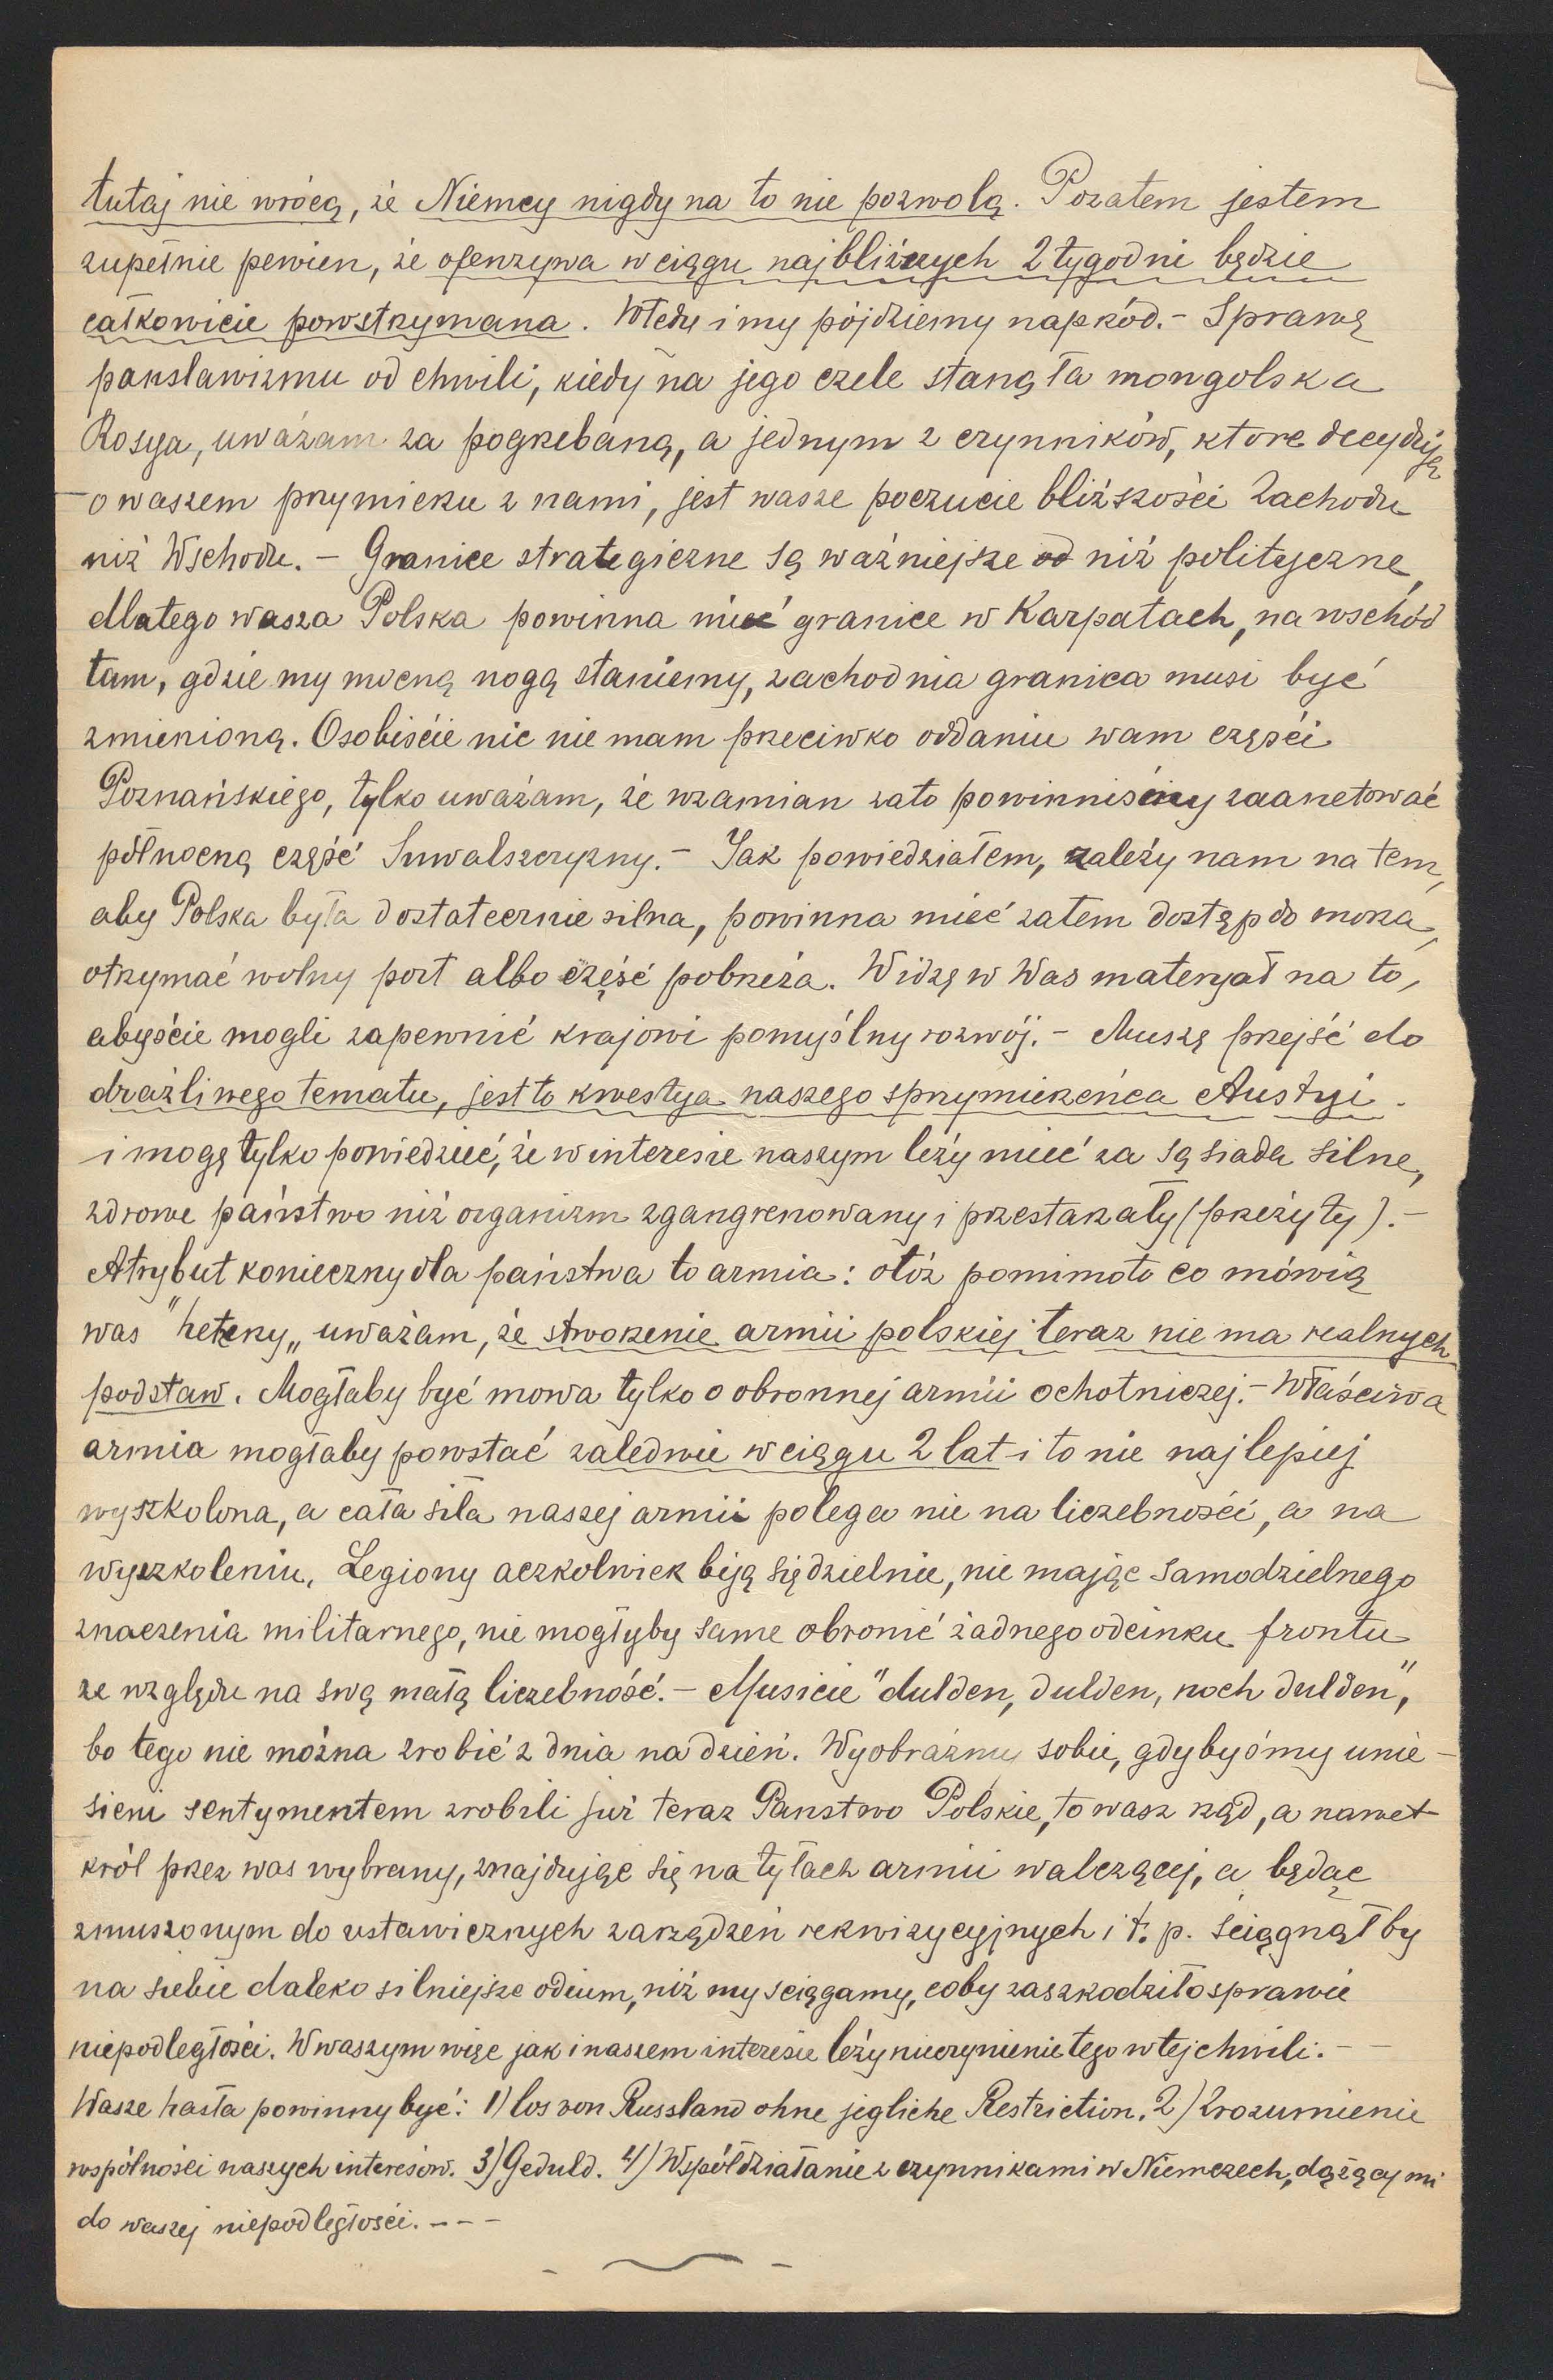 tutaj nie wrócą, że Niemcy nigdy na to nie pozwolą. Pozatem jestem
zupełnie pewien, że ofenzywa w ciągu najbliższych 2 tygodni będzie
całkowicie powstrzymana. Wtedy i my pójdziemy naprzód.- Sprawę
panslawizmu od chwili, kiedy na jego czele stanęła mongolska
Rosya, uważam za pogrzebaną, a jednym z czynników, które decydują
o waszem przymierzu z nami, jest wasze poczucie bliższości Zachodu
niż Wschodu. - Granice strategiczne są ważniejsze od niż polityczne,
dlatego wasza Polska powinna mieć granice w Karpatach, na wschód
tam, gdzie my mocną nogą staniemy, zachodnia granica musi być
zmienioną. Osobiście nic nie mam przeciwko oddaniu wam części
Poznańskiego, tylko uważam, że wzamian zato powinniśmy zaanetować
północną część Suwalszczyzny.- Jak powiedziałem, zależy nam na tem,
aby Polska była dostatecznie silna, powinna mieć zatem dostęp do morza,
otrzymać wolny port albo część pobrzeża. Widzę w Was materyał na to,
abyście mogli zapewnić krajowi pomyślny rozwój.- Muszę przejść do
drażliwego tematu, jest to kwestya naszego sprzymierzeńca Austryi.
i mogę tylko powiedzieć, że w interesie naszym leży mieć za sąsiada silne,
zdrowe państwo niż organizm zgangrenowany i przestarzały (przeżyty).-
Atrybut konieczny dla państwa to armia: otóż pomimo to co mówią
was "hetzery„ uważam, że stworzenie armii polskiej teraz nie ma realnych
podstaw. Mogłaby być mowa tylko o obronnej armii ochotniczej.- Właściwa
armia mogłaby powstać zaledwie w ciągu 2 lat i to nie najlepiej
wyszkolona, a cała siła naszej armii polega nie na liczebności, a na
wyszkoleniu. Legiony aczkolwiek biją się dzielnie, nie mając samodzielnego
znaczenia militarnego, nie mogłyby same obronić żadnego odcinku frontu
ze względu na swą małą liczebność.- Musicie "dulden, dulden, noch dulden",
bo tego nie można zrobić z dnia na dzień. Wyobraźmy sobie, gdybyśmy unie-
sieni sentymentem zrobili już teraz Panstwo Polskie, to wasz rząd, a nawet
król przez was wybrany, znajdując się na tyłach armii walczącej, a będąc
zmuszonym do ustawicznych zarządzeń rekwizycyjnych i t. p. ściągnąłby
na siebie daleko silniejsze odium, niż my sciągamy, coby zaszkodziło sprawie
niepodległości. W waszym więc jak i naszem interesie leży nieczynienie tego w tej chwili.--
Wasze hasła powinny być: 1) los von Russland ohne jegliche Restriction. 2) Zrozumienie
wspólności naszych interesów. 3) Geduld. 4) Współdziałanie z czynnikami w Niemczech, dążącymi
do waszej niepodległości.---